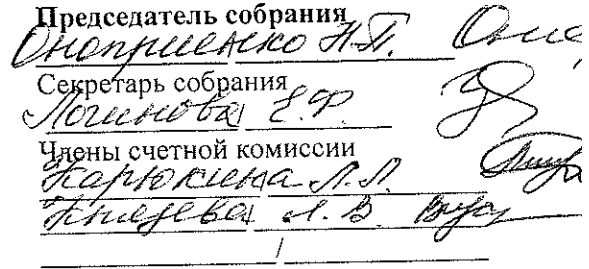 Председатель собрания
Оноприенко Н.П.
Секретарь собрания
Логинова Е.Ф.
Члены счетной комиссии
Карюкина Л.Л.
Князева Л.В.